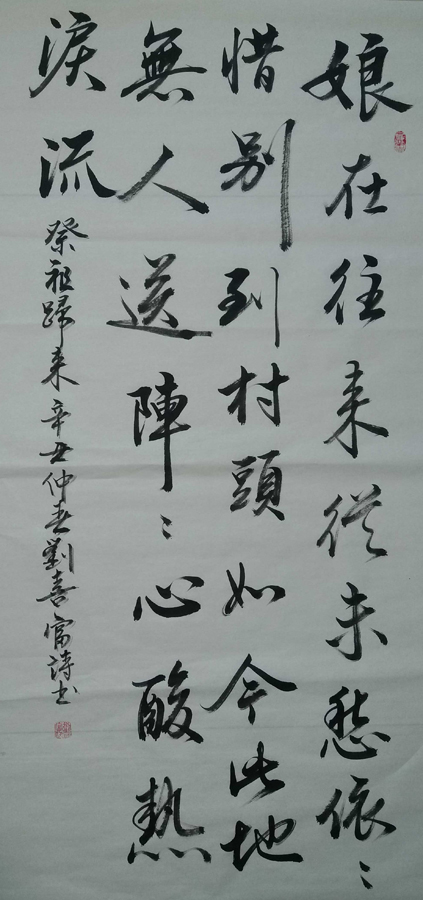 娘在往来從未愁依々
惜别到村頭如今此地
無人送陣々心酸熱
淚流
祭祖歸来辛丑仲春劉喜富詩书